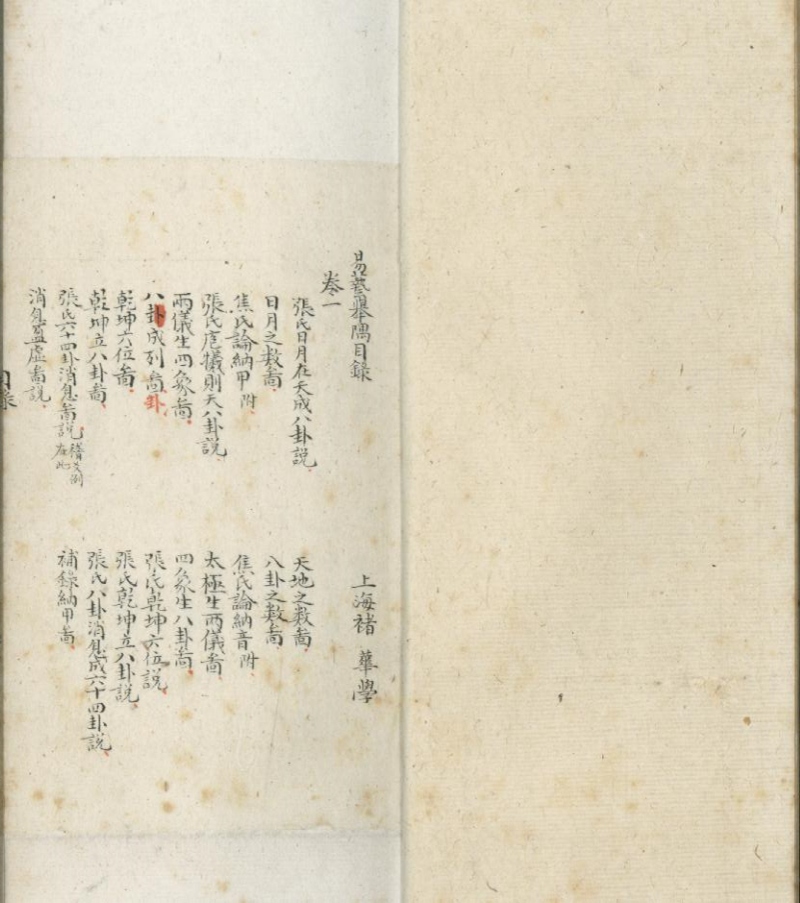 易藝舉隅目錄　上海褚　華學
卷一
張氏日月在天成八卦說　天地之数啚
日月之数啚　八卦之数啚
焦氏論納甲附　焦氏論納音附
張氏庖犧則天八卦説　太極生兩儀啚
兩儀生四象啚　四象生八卦啚
八卦成列啚卦　張氏乾坤六位説
乾坤六位啚　張氏乾坤立八卦説
乾坤立八卦啚　張氏八卦消息成六十四卦説
張氏六十四卦消息啚説　補錄納甲啚
消息盈虛啚説
目錄